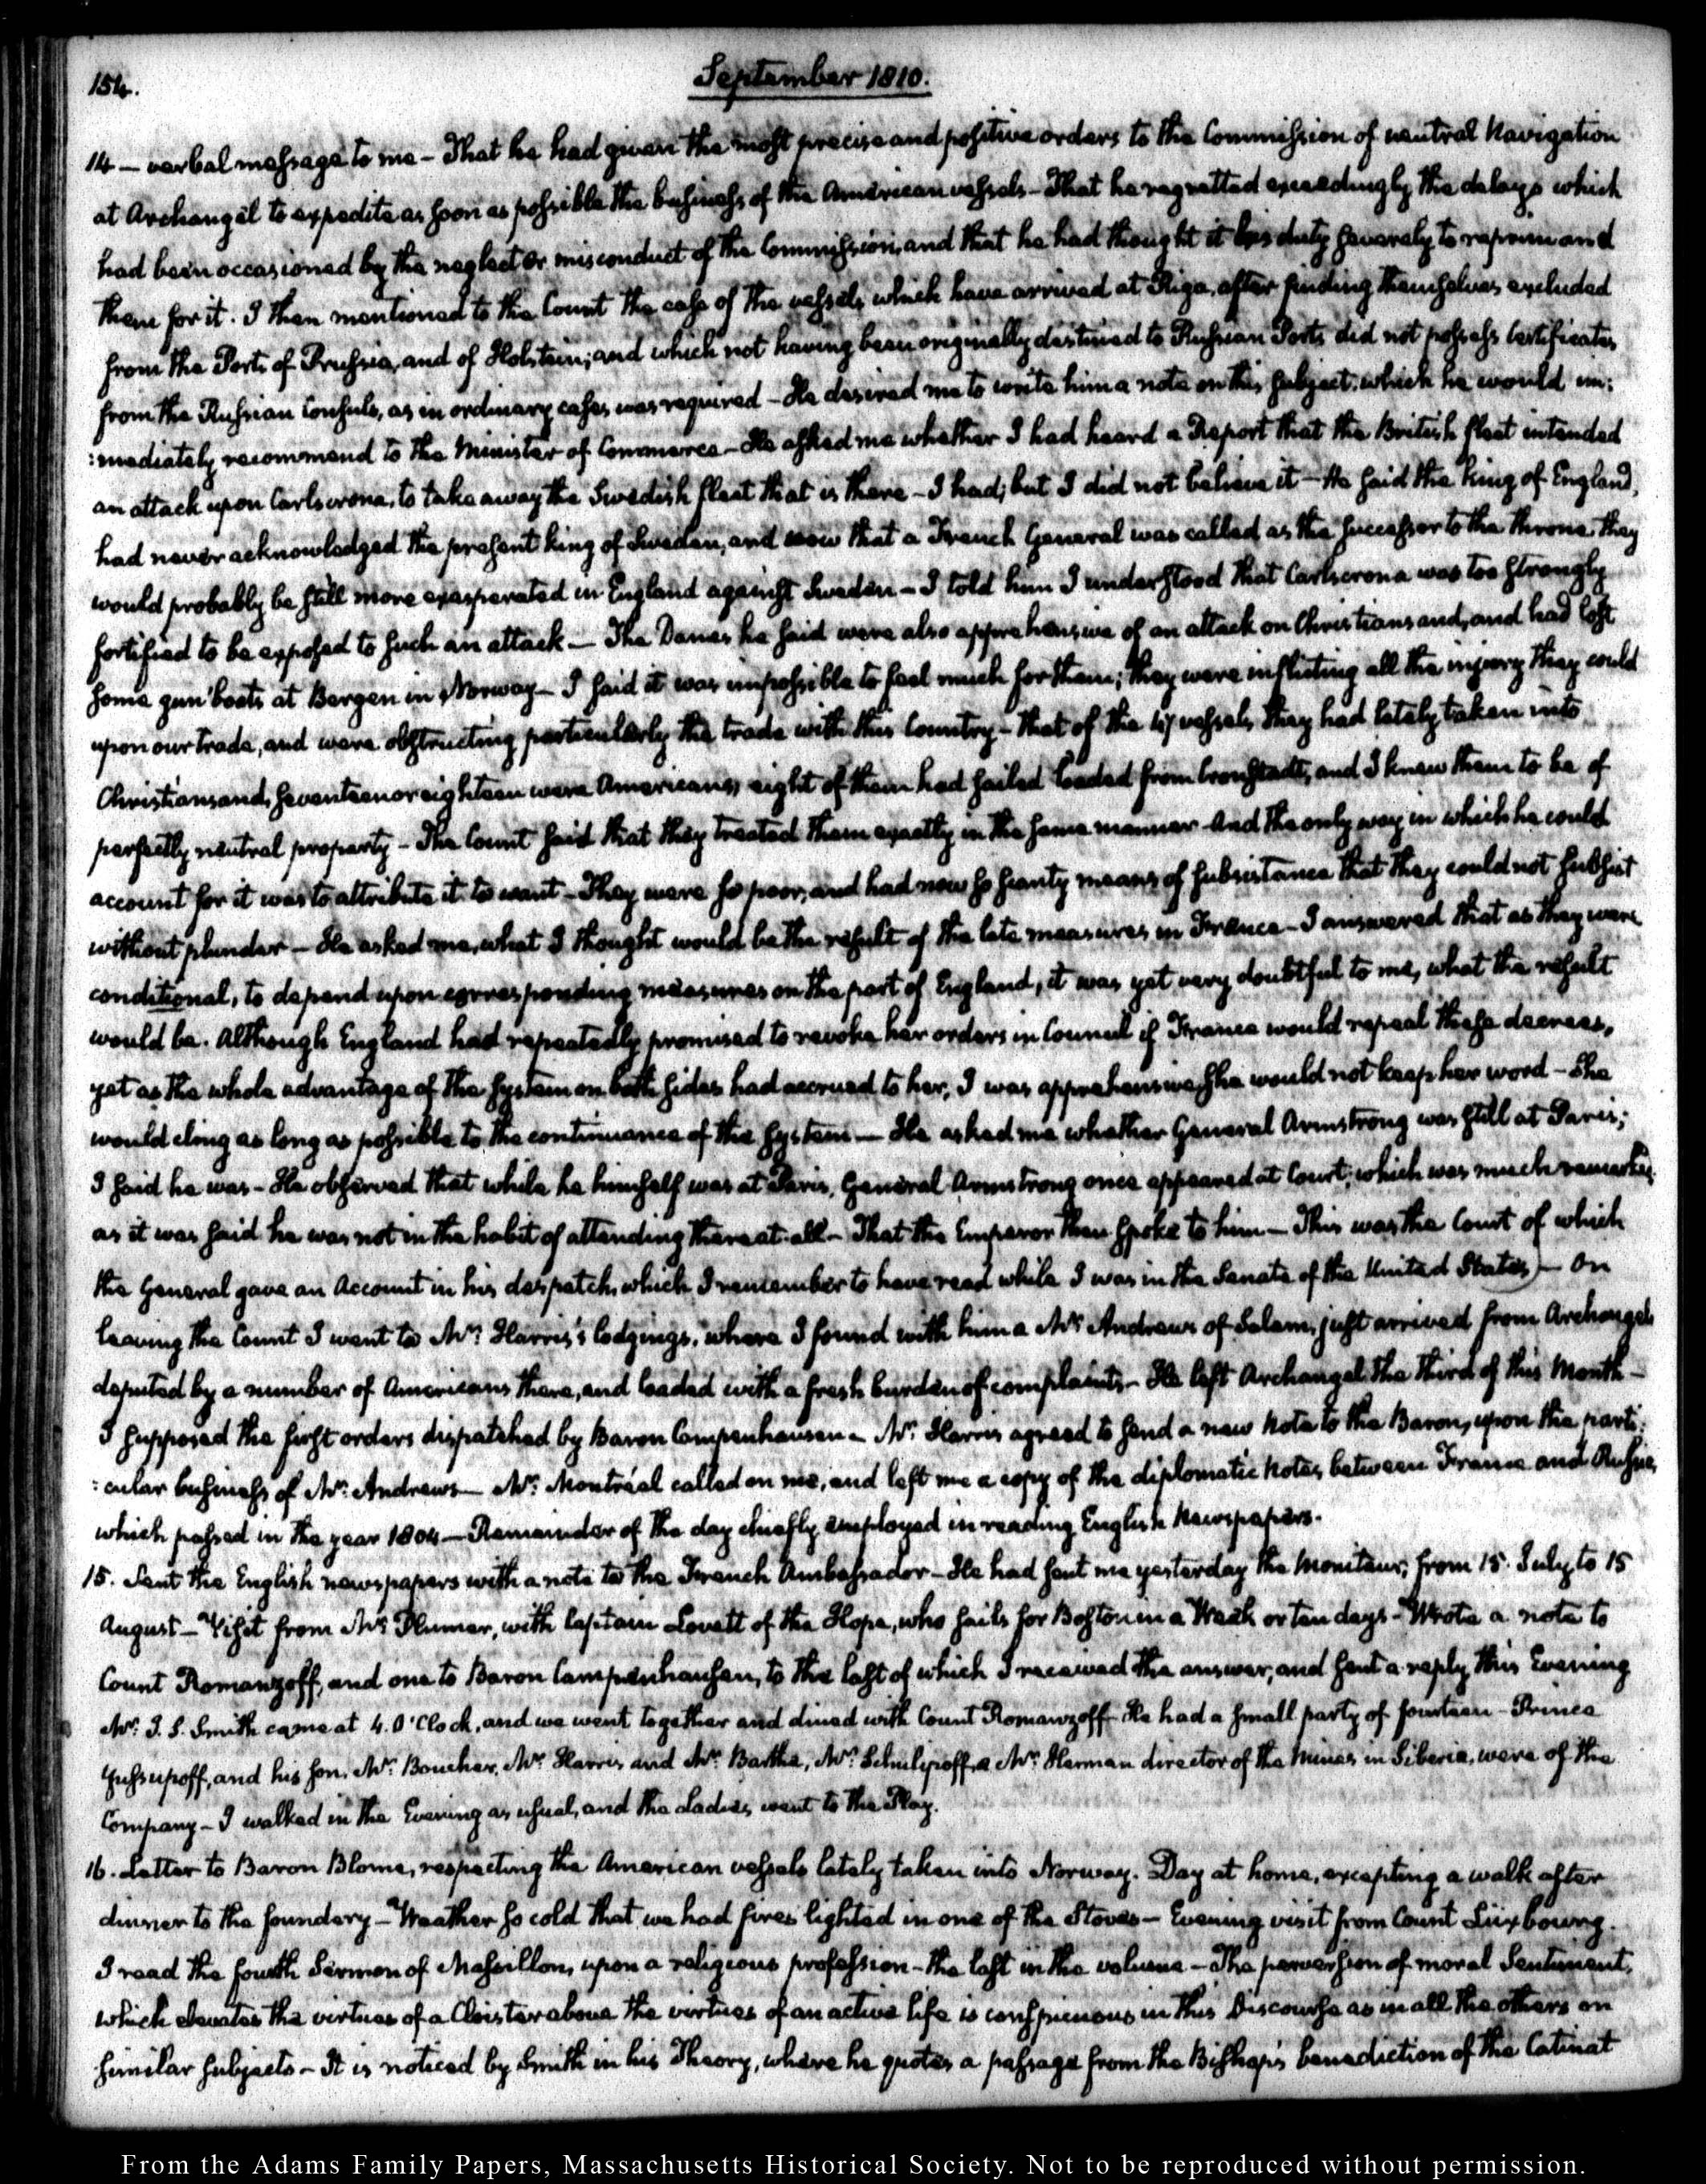 154.
September 1810.
14 — verbal message to me – That he had given the most precise and positive orders to the Commission of neutral Navigation
at Archangel to expedite as soon as possible the business of the American vessels – That he regretted exceedingly the delays which
had been occasioned by the neglect or misconduct of the Commission, and that he had thought it his duty severely to reprimand
them for it. I then mentioned to the Count the case of the vessels, which have arrived at Riga, after finding themselves excluded
from the Ports of Prussia, and of Holstein; and which not having been originally destined to Russian Ports did not possess Certificates
from the Russian Consuls, as in ordinary cases was required – He desired me to write him a note on this subject; which he would im:
:mediately recommend to the Minister of Commerce – He asked me whether I had heard a Report that the British fleet intended
an attack upon Carlscrona, to take away the Swedish fleet that is there – I had; but I did not believe it – He said the King of England,
had never acknowledged the present king of Sweden, and now that a French General was called as the successor to the throne they
would probably be still more exasperated in England against Sweden – I told him I understood that Carlscrona was too strongly
fortified to be exposed to such an attack — The Danes he said were also apprehensive of an attack on Christiansand, and had lost
some gun boats at Bergen in Norway – I said it was impossible to feel much for them; they were inflicting all the injury they could
upon our trade, and were obstructing particularly the trade with this Country – That of the 47 vessels they had lately taken into
Christiansand, seventeen or eighteen were Americans, eight of them had sailed loaded from Cronstadt, and I knew them to be of
perfectly neutral property – The Count said that they treated them exactly in the same manner – And the only way in which he could
account for it was to attribute it to want – They were so poor, and had now so scanty means of subsistance that they could not subsist
without plunder – He asked me, what I thought would be the result of the late measures in France – I answered that as they were
conditional, to depend upon corresponding measures on the part of England, it was yet very doubtful to me, what the result
would be. Although England had repeatedly promised to revoke her orders in Council if France would repeal these decrees,
yet as the whole advantage of the system on both sides had accrued to her, I was apprehensive she would not keep her word – She
would cling as long as possible to the continuance of the system — He asked me whether General Armstrong was still at Paris;
I said he was – He observed that while he himself was at Paris, General Armstrong once appeared at Court; which was much remarked
as it was said he was not in the habit of attending there at all – That the Emperor then spoke to him — This was the Court of which
the General gave an Account in his despatch, which I remember to have read while I was in the Senate of the United States) – On
leaving the Count I went to Mr. Harris's lodgings, where I found with him a Mr Andrews of Salem, just arrived from Archangel
deputed by a number of Americans there, and loaded with a fresh burden of complaints – He left Archangel the third of this Month –
I supposed the first orders dispatched by Baron Campenhausen – Mr. Harris agreed to send a new Note to the Baron, upon the parti:
:cular business of Mr. Andrews — Mr. Montréal called on me, and left me a copy of the diplomatic Notes between France and Russia,
which passed in the year 1804 — Remainder of the day chiefly employed in reading English Newspapers.
15. Sent the English newspapers with a note to the French Ambassador – He had sent me yesterday the Moniteurs, from 15. July to 15
August – Visit from Mr Plumer, with Captain Lovett of the Hope, who sails for Boston in a Week or ten days – Wrote a note to
Count Romanzoff, and one to Baron Campenhausen, to the last of which I received the answer, and sent a reply this Evening
Mr. J. S. Smith came at 4. O'Clock, and we went together and dined with Count Romanzoff – He had a small party of fourteen – Prince
Yussupoff, and his son, Mr. Boucher, Mr. Harris and Mr. Bartha, Mr. a Mr. Herman director of the Mines in Siberia, were of the
Company – I walked in the Evening as usual, and the Ladies, went to the Play.
16. Letter to Baron Blome, respecting the American vessels lately taken into Norway. Day at home, excepting a walk after
dinner to the foundery – Weather so cold that we had fires lighted in one of the Stoves – Evening visit from Count Luxbourg.
I read the fourth Sermon of Massillon, upon a religious profession – the last in the volume – The perversion of moral Sentiment,
which elevates the virtues of a Cloister above the virtues of an active life is conspicuous in this Discourse as in all the others on
similar subjects – It is noticed by Smith in his Theory, where he quotes a passage from the Bishop's benediction of the Catinat
From the Adams Family Papers, Massachusetts Historical Society. Not to be reproduced without permission.